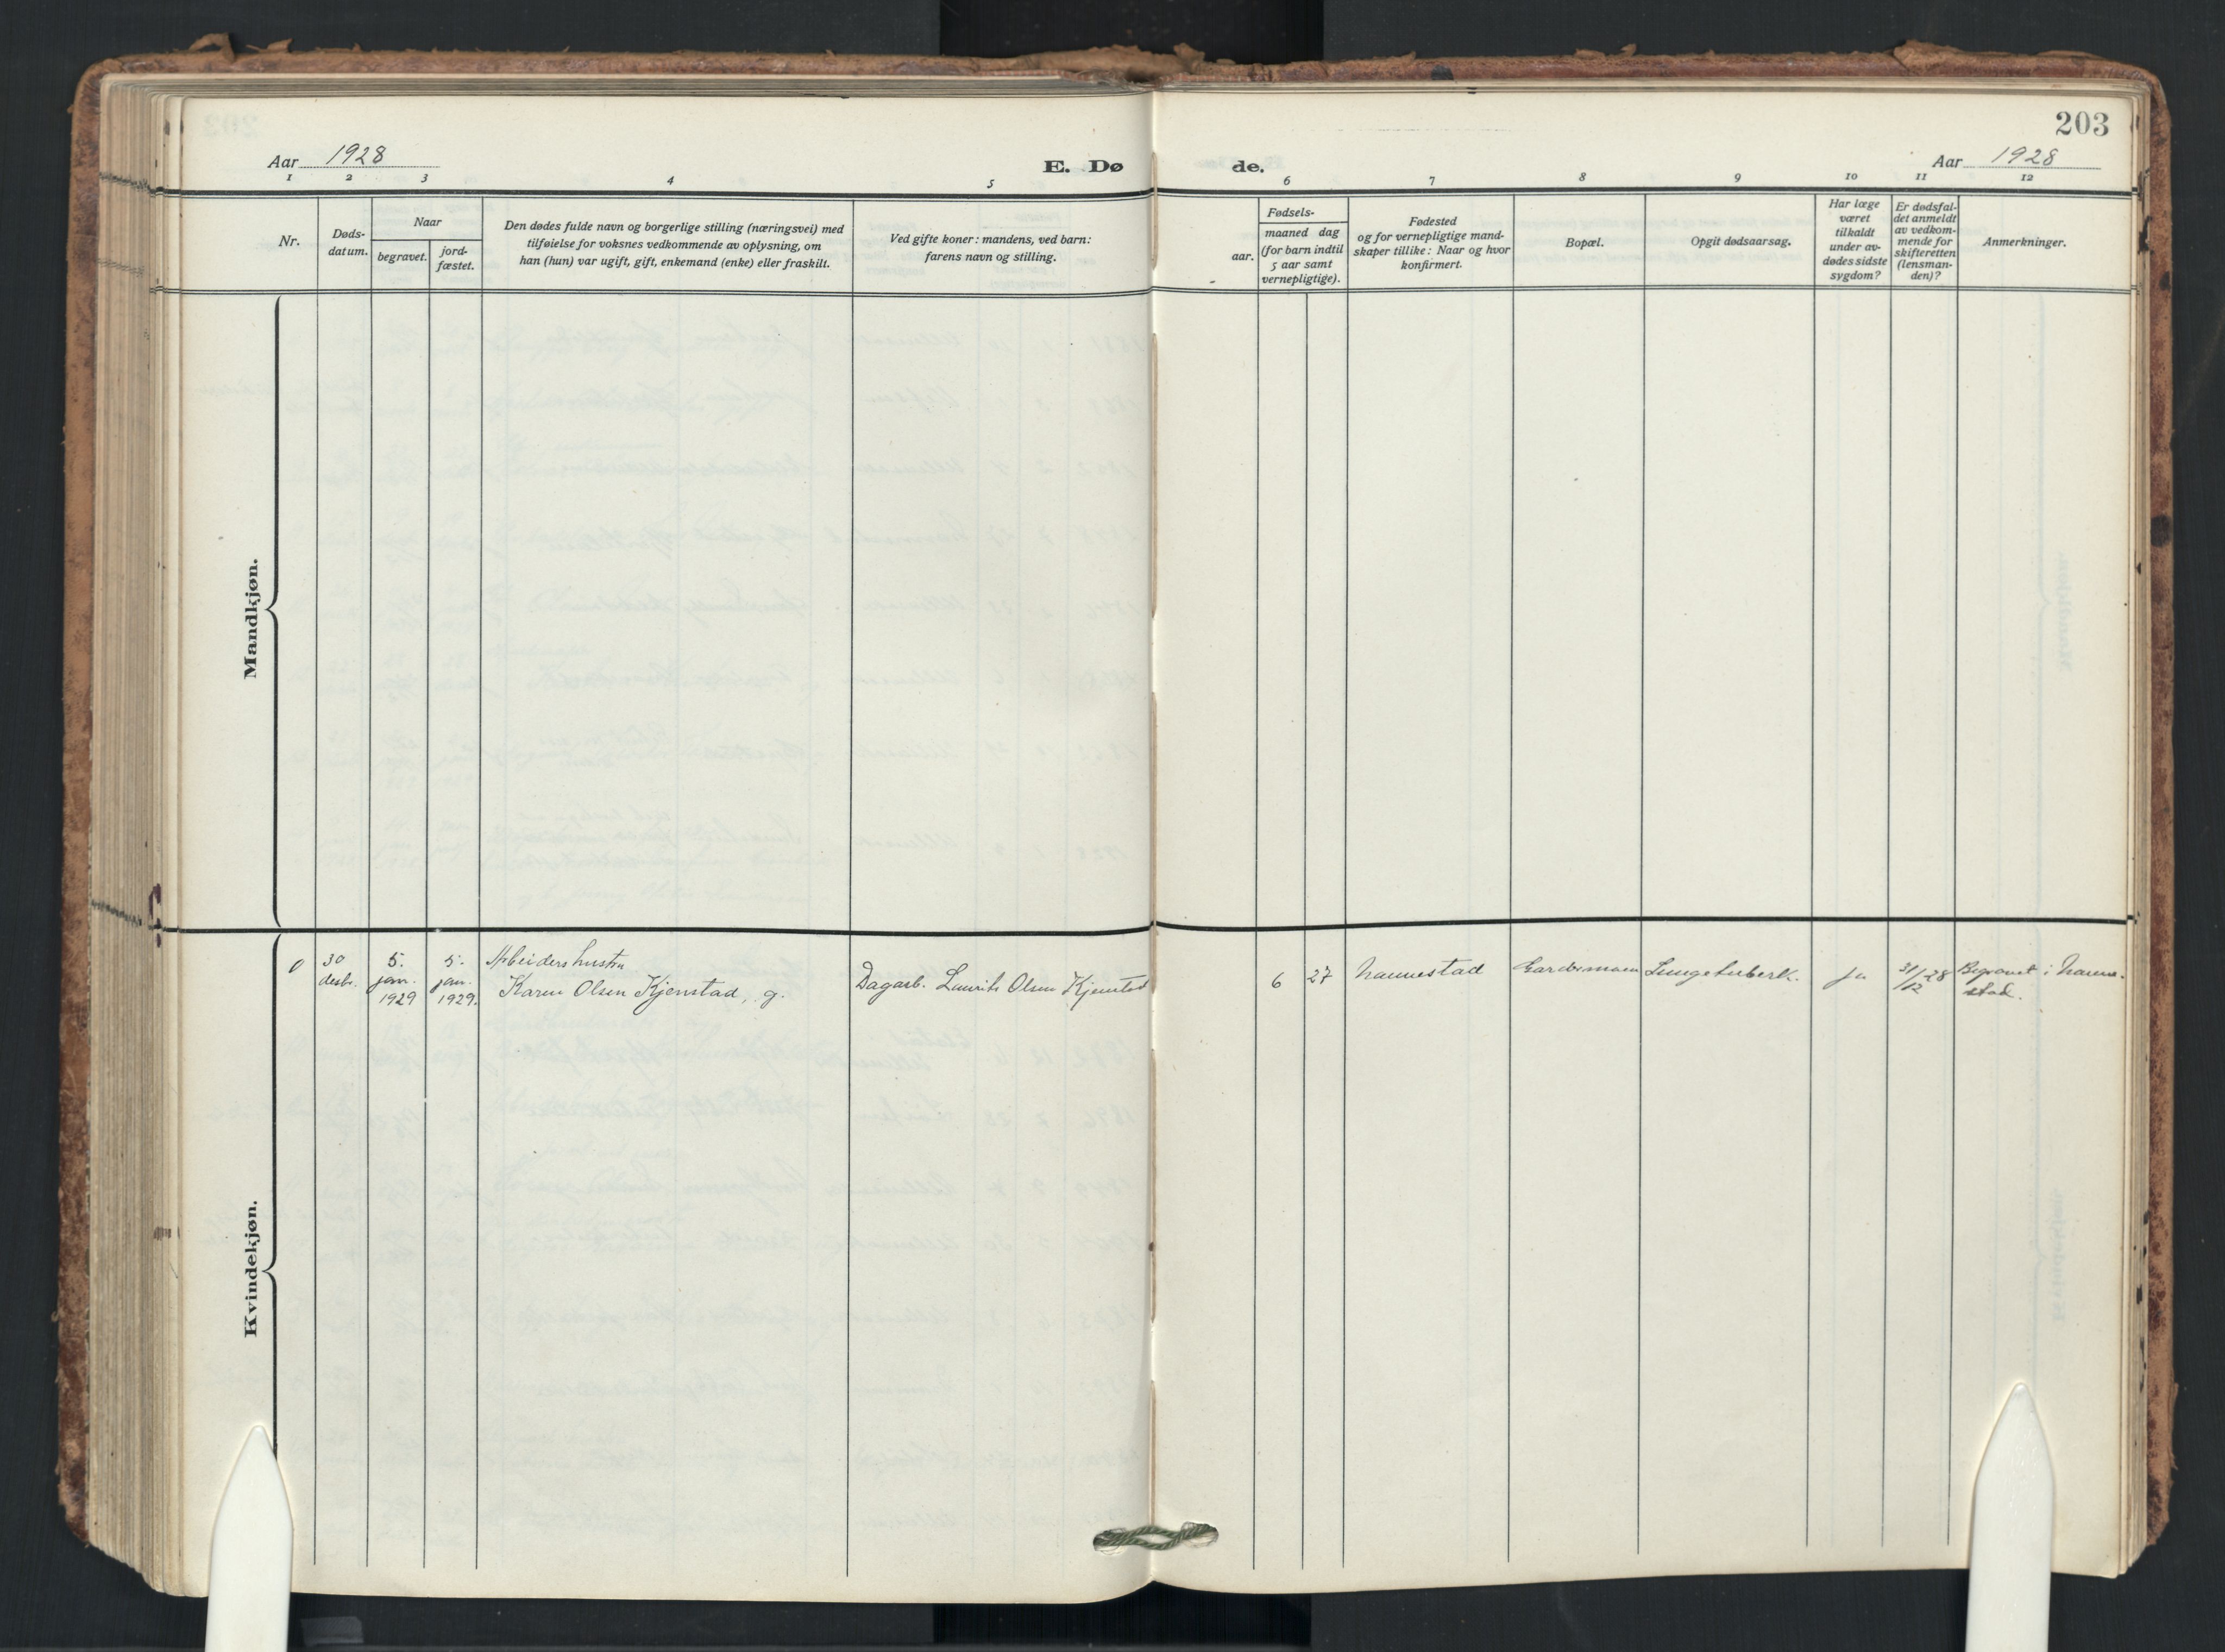 203
Aar 1928
E. Dø
de.
Aar 1928
1 2 3 4 5 6 7 8 9 10 11 12
Nr.
Døds-
datum.
Naar
begravet.
jord-
fæstet.
Den dødes fulde navn og borgerlige stilling (næringsvei) med
tilføielse for voksnes vedkommende av oplysning, om
han (hun) var ugift, gift, enkemand (enke) eller fraskilt.
Ved gifte koner: mandens, ved barn:
farens navn og stilling.
Fødsels-
aar.
maaned dag
(for barn indtil
5 aar samt
vernepligtige).
Fødested
og for vernepligtige mand-
skaper tillike: Naar og hvor
konfirmert.
Bopæl.
Opgit dødsaarsag.
Har læge
været
tilkaldt
under av-
dødes sidste
sygdom?
Er dødsfal-
det anmeldt
av vedkom-
mende for
skifteretten
(lensman-
den)?
Anmerkninger.
Mandkjøn.
Kvindekjøn.
0
30
desbr.
5.
jan.
1929
5.
jan.
1929.
Arbeidershustru
Karen Olsen Kjenstad, g.
Dagarb. Laurits Olsen Kjenstad
6 27
Nannestad
Gardermoen
Lungetuberk.
ja
31/12-28
Begravet i Nanne-
stad.